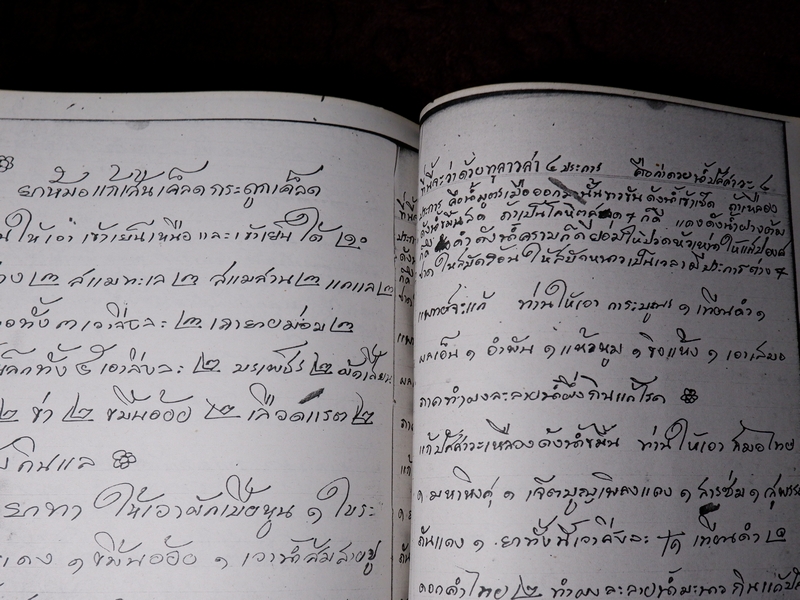 ยาต้มแก้เส้นเคล็ดกระดูกเคล็ด
ให้เอา เข้าเย็นเหนือ และเข้าเย็นใต้ ๒๐
๒ สแมทะเล ๒ สแมสาน ๒ แกแล ๒
ทั้ง ๓ เอาสิ่งละ ๒ เถายายม่อม ๒
ทั้ง ๕ เอาสิ่งละ ๒ บรเพ็ชร์ ๒
๒ ข่า ๒ ขมิ้นอ้อย ๒ เลือดแรต ๒
กินแล
ยาทา ให้เอาผักเบี้ยหูน ๑ ใบระ
แดง ๑ ขมิ้นอ้อย ๑ เอาน้ำส้มสายชู
ทีนี้จะว่าด้วยทุลาวสา ๔ ประการ คือว่าด้วยน้ำปัสสาวะ ๔
ประการ คือน้ำมูตรเมื่อออกมานั้นขาวขุ่นดังน้ำเข้าเช็ด ถ้าเหลือง
ดังน้ำขมิ้นสด ถ้าเป็นโลหิตสด ๆ ก็ดี แดงดังน้ำฝางต้ม
ก็ดี ดำดังน้ำครามก็ดี ย่อมให้ปวดหัวเหน่าให้แสบองค์
ชาต ให้สบัดร้อน ให้สบัดหนาวเป็นเวลา มีประการต่าง ๆ
แพทย์จะแก้ ท่านให้เอา การะบูน ๑ เทียนดำ ๑
ผลเอ็น ๑ อำพัน ๑ แห้วหมู ๑ ขิงแห้ง ๑ เอาเสมอ
ภาคทำผงละลายน้ำผึ้งกินแก้โรค
แก้ปัสสาวะเหลืองดังน้ำขมิ้น ท่านให้เอา สมอไทย
๑ มหาหิงคุ์ ๑ เจตมูลเพลงแดง ๑ สารซ่ม ๑
ถันแดง ๑ ยาทั้งนี้เอาสิ่งละ เทียนดำ ๒
ดอกคำไทย ๒ ทำผงละลายน้ำมะนาว กินแก้